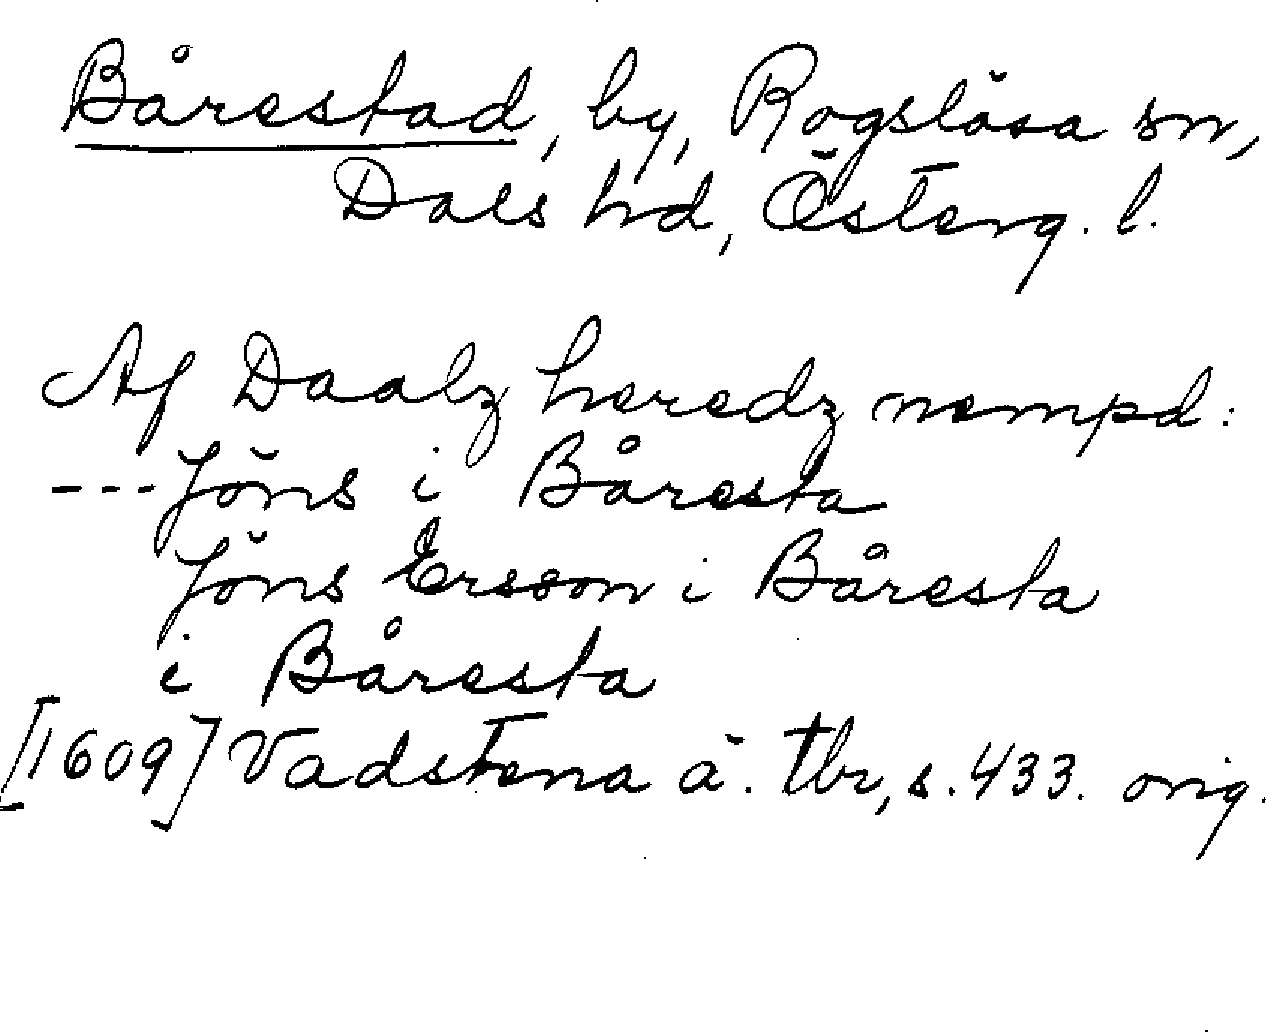 Bårestad, by, Rogslösa sn,
Dals hd, Österg. l.
Af Daalz heredz nempd:
--- Jöns i Båresta
Jöns Ersson i Båresta
i Båresta
[1609] Vadstena ä. tbr, s. 433. orig.